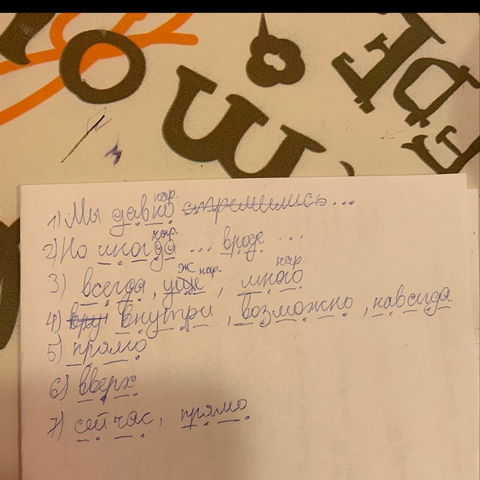 1) Мы давно стремились...
нар.
2) Но иногда ... вроде ...
нар.
3) всегда, уже, много
ж нар. нар.
4) внутри, возможно, навсегда
5) прямо
6) вверх
7) сейчас, прямо